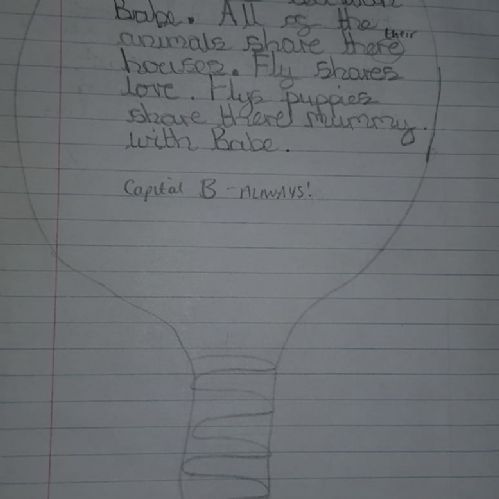 Babe. All of the
their
animals share there
houses. Fly shares
love. Flys puppies
share there mummy.
with Babe.
Capital B - ALWAYS!